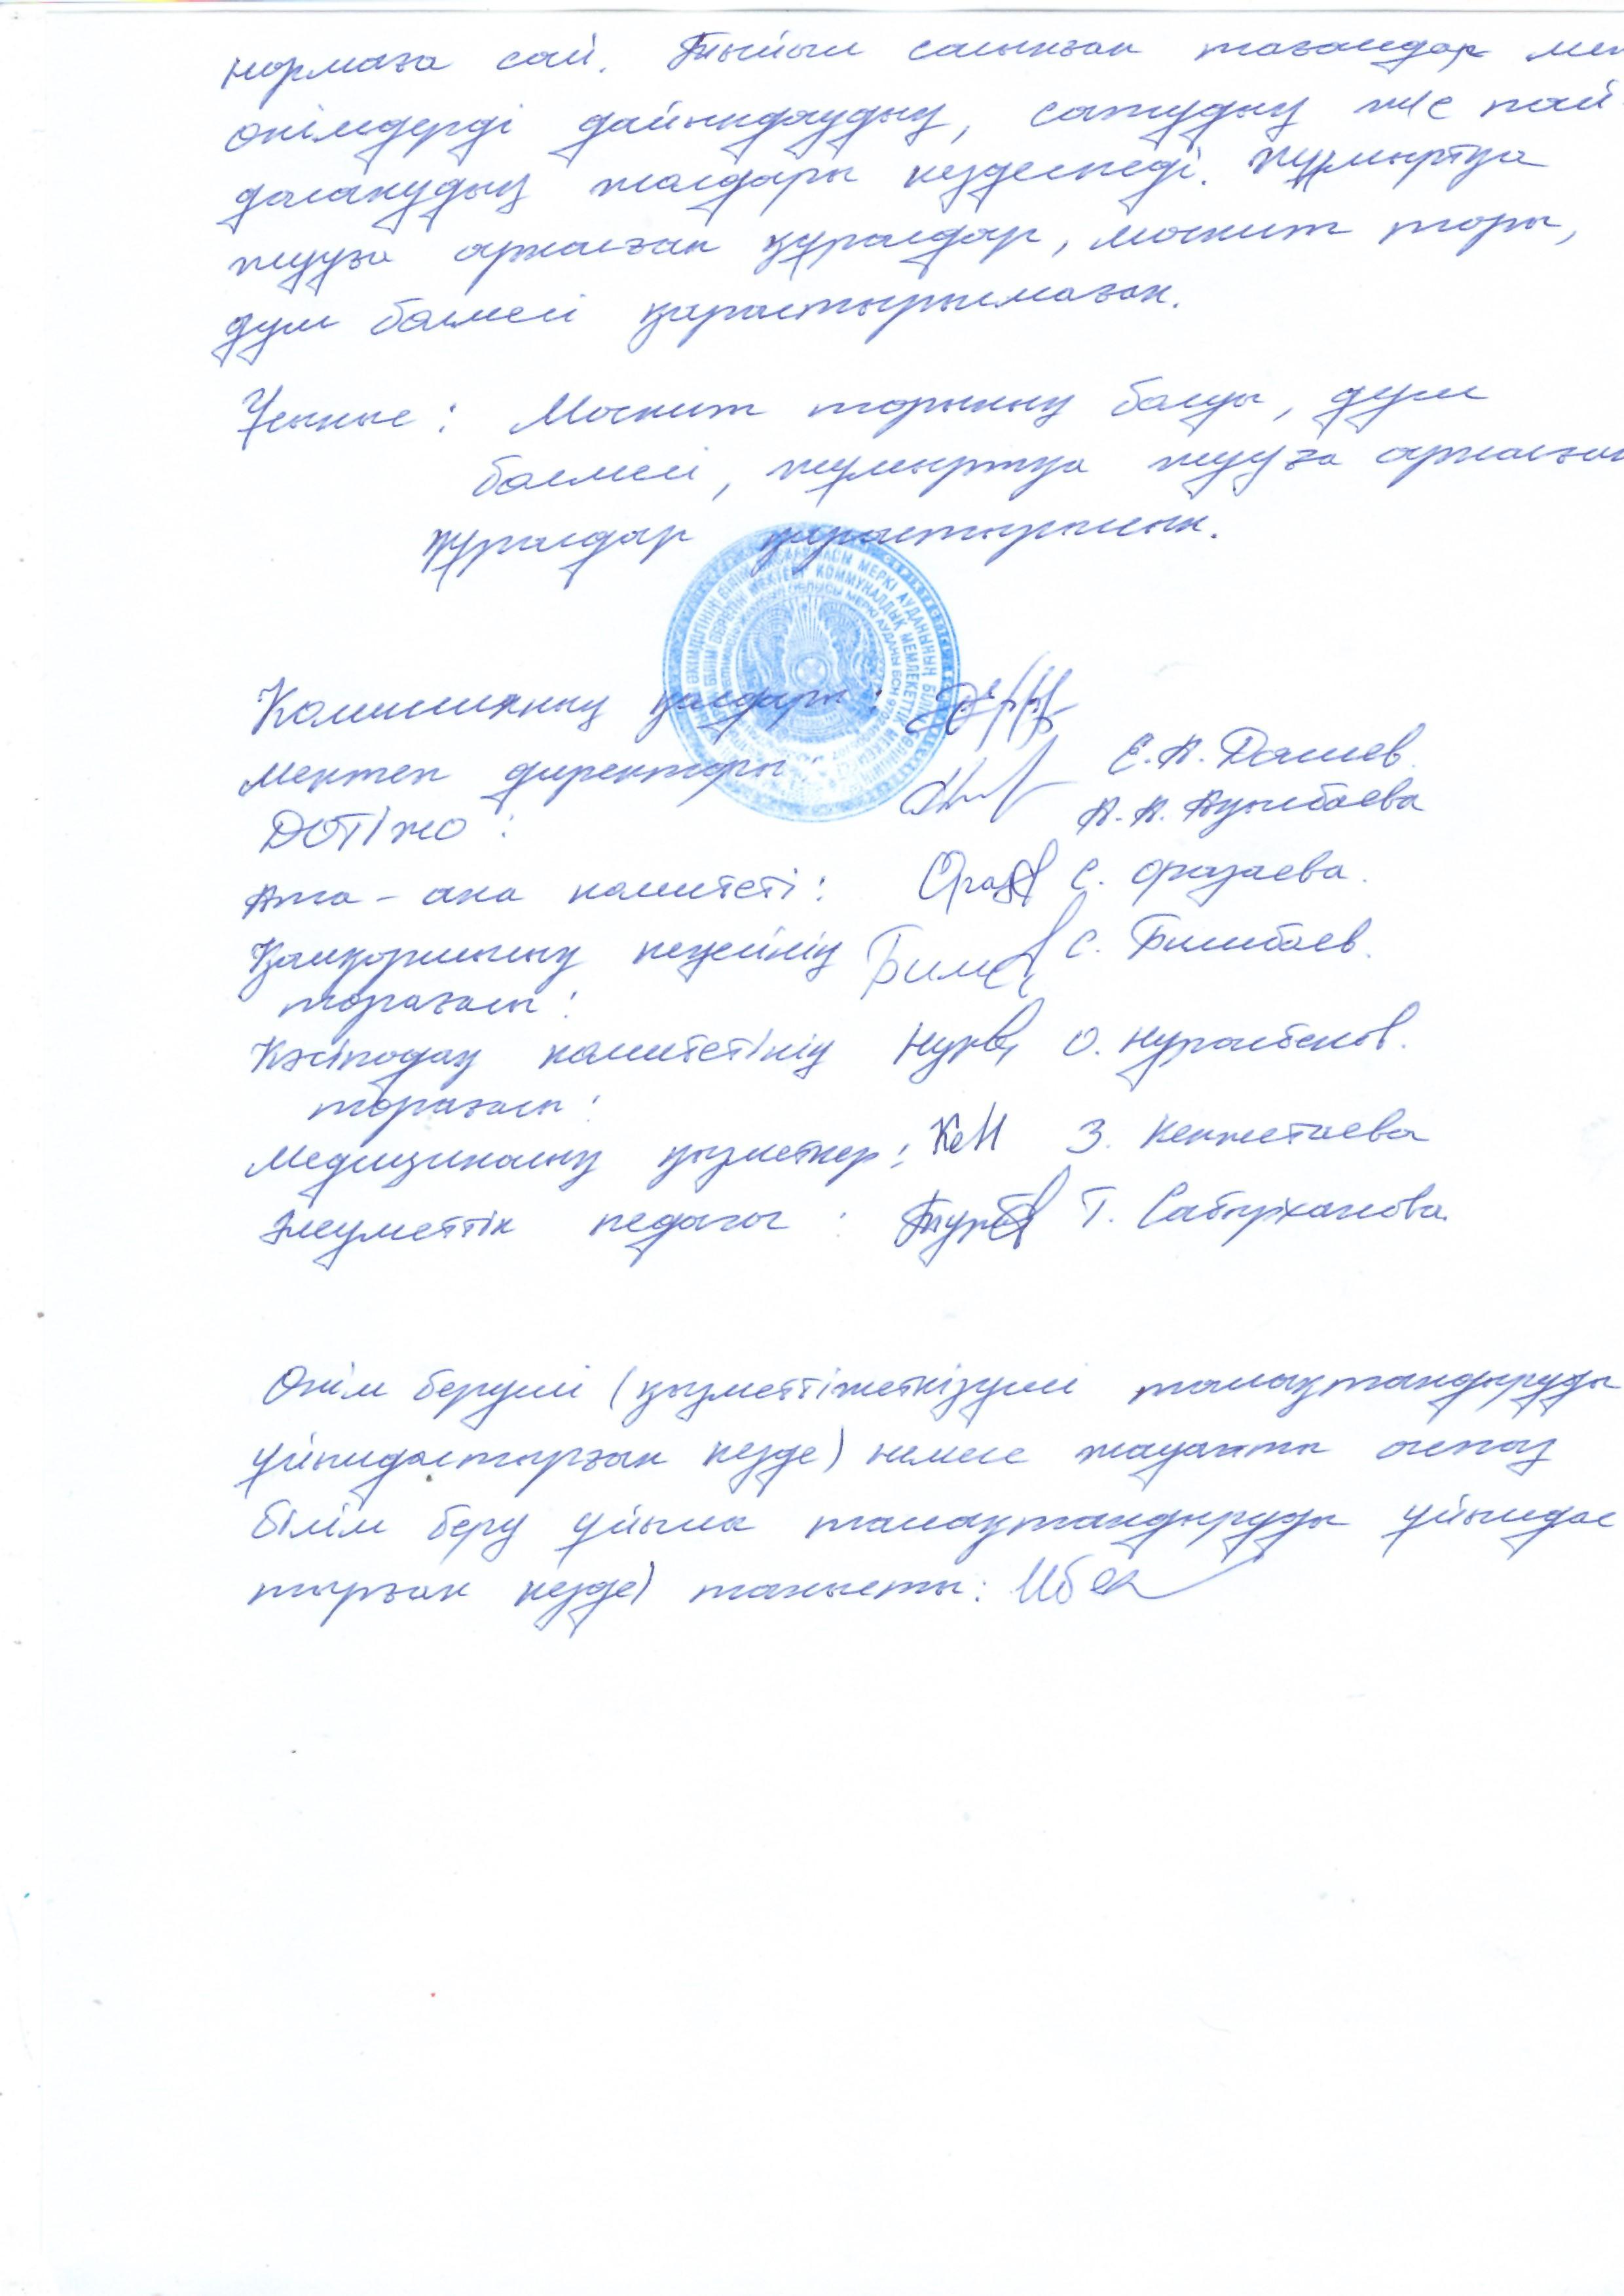 нормаға сай. Тыйым салынған тағамдар мен
өнімдерді дайындаудың, сатудың ж/е пай
даланудың жағдары кездеспеді. Жұмыртқа
жууға арналған құралдар, москит торы,
душ бөлмесі қарастырылмаған.
Ұсыныс: Москит торының болуы, душ
бөлмесі, жұмыртқа жууға арналған
құралдар қарастырылсын.
Комиссияның қолдары:
Мектеп директоры: Е.А. Далиев.
ДОТІЖО: А.А.
Ата-ана комитеті: С. Оразаева.
Қамқоршылық кеңесінің С. Билибаев.
төрағасы:
Кәсіподақ комитетінің О. Нуралбеков.
төрағасы:
Медициналық қызметкер: З. Кенжетаева
Әлеуметтік педагог: Т. Сабырханова.
Өнім беруші (қызметтіжеткізуші тамақтандыруды
ұйымдастырған кезде) немесе жауапты аспаз
білім беру ұйымы тамақтандыруды ұйымдас
тырған кезде) танысты: